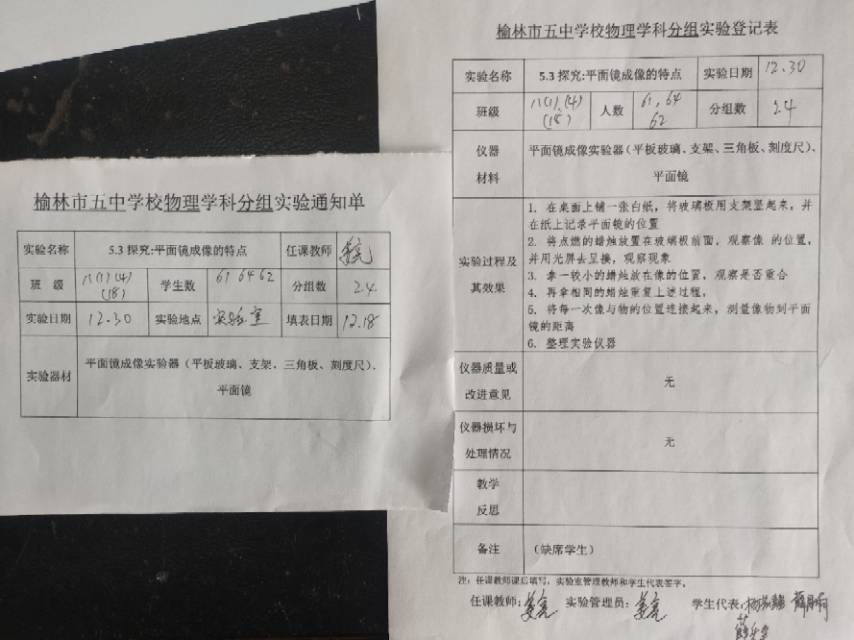 榆林市五中学校物理学科分组实验通知单
实验名称 5.3 探究:平面镜成像的特点 任课教师
班 级 八(1)(4) 学生数 61 64 62 分组数 24
(18)
实验日期 12.30 实验地点 实验室 填表日期 12.18
实验器材 平面镜成像实验器(平板玻璃、支架、三角板、刻度尺)、
平面镜
榆林市五中学校物理学科分组实验登记表
实验名称 5.3 探究:平面镜成像的特点 实验日期 12.30
班级 八(1)、(4) 人数 61、64 分组数 24
(18) 62
仪器 平面镜成像实验器(平板玻璃、支架、三角板、刻度尺)、
材料 平面镜
实验过程及
其效果
1. 在桌面上铺一张白纸，将玻璃板用支架竖起来，并
在纸上记录平面镜的位置
2. 将点燃的蜡烛放置在玻璃板前面，观察像 的位置，
并用光屏去呈接，观察现象
3. 拿一较小的蜡烛放在像的位置，观察是否重合
4. 再拿相同的蜡烛重复上述过程，
5. 将每一次像与物的位置连接起来，测量像物到平面
镜的距离
6. 整理实验仪器
仪器质量或 无
改进意见
仪器损坏与 无
处理情况
教学
反思
备注 (缺席学生)
注: 任课教师课后填写，实验室管理教师和学生代表签字。
任课教师: 实验管理员: 学生代表: